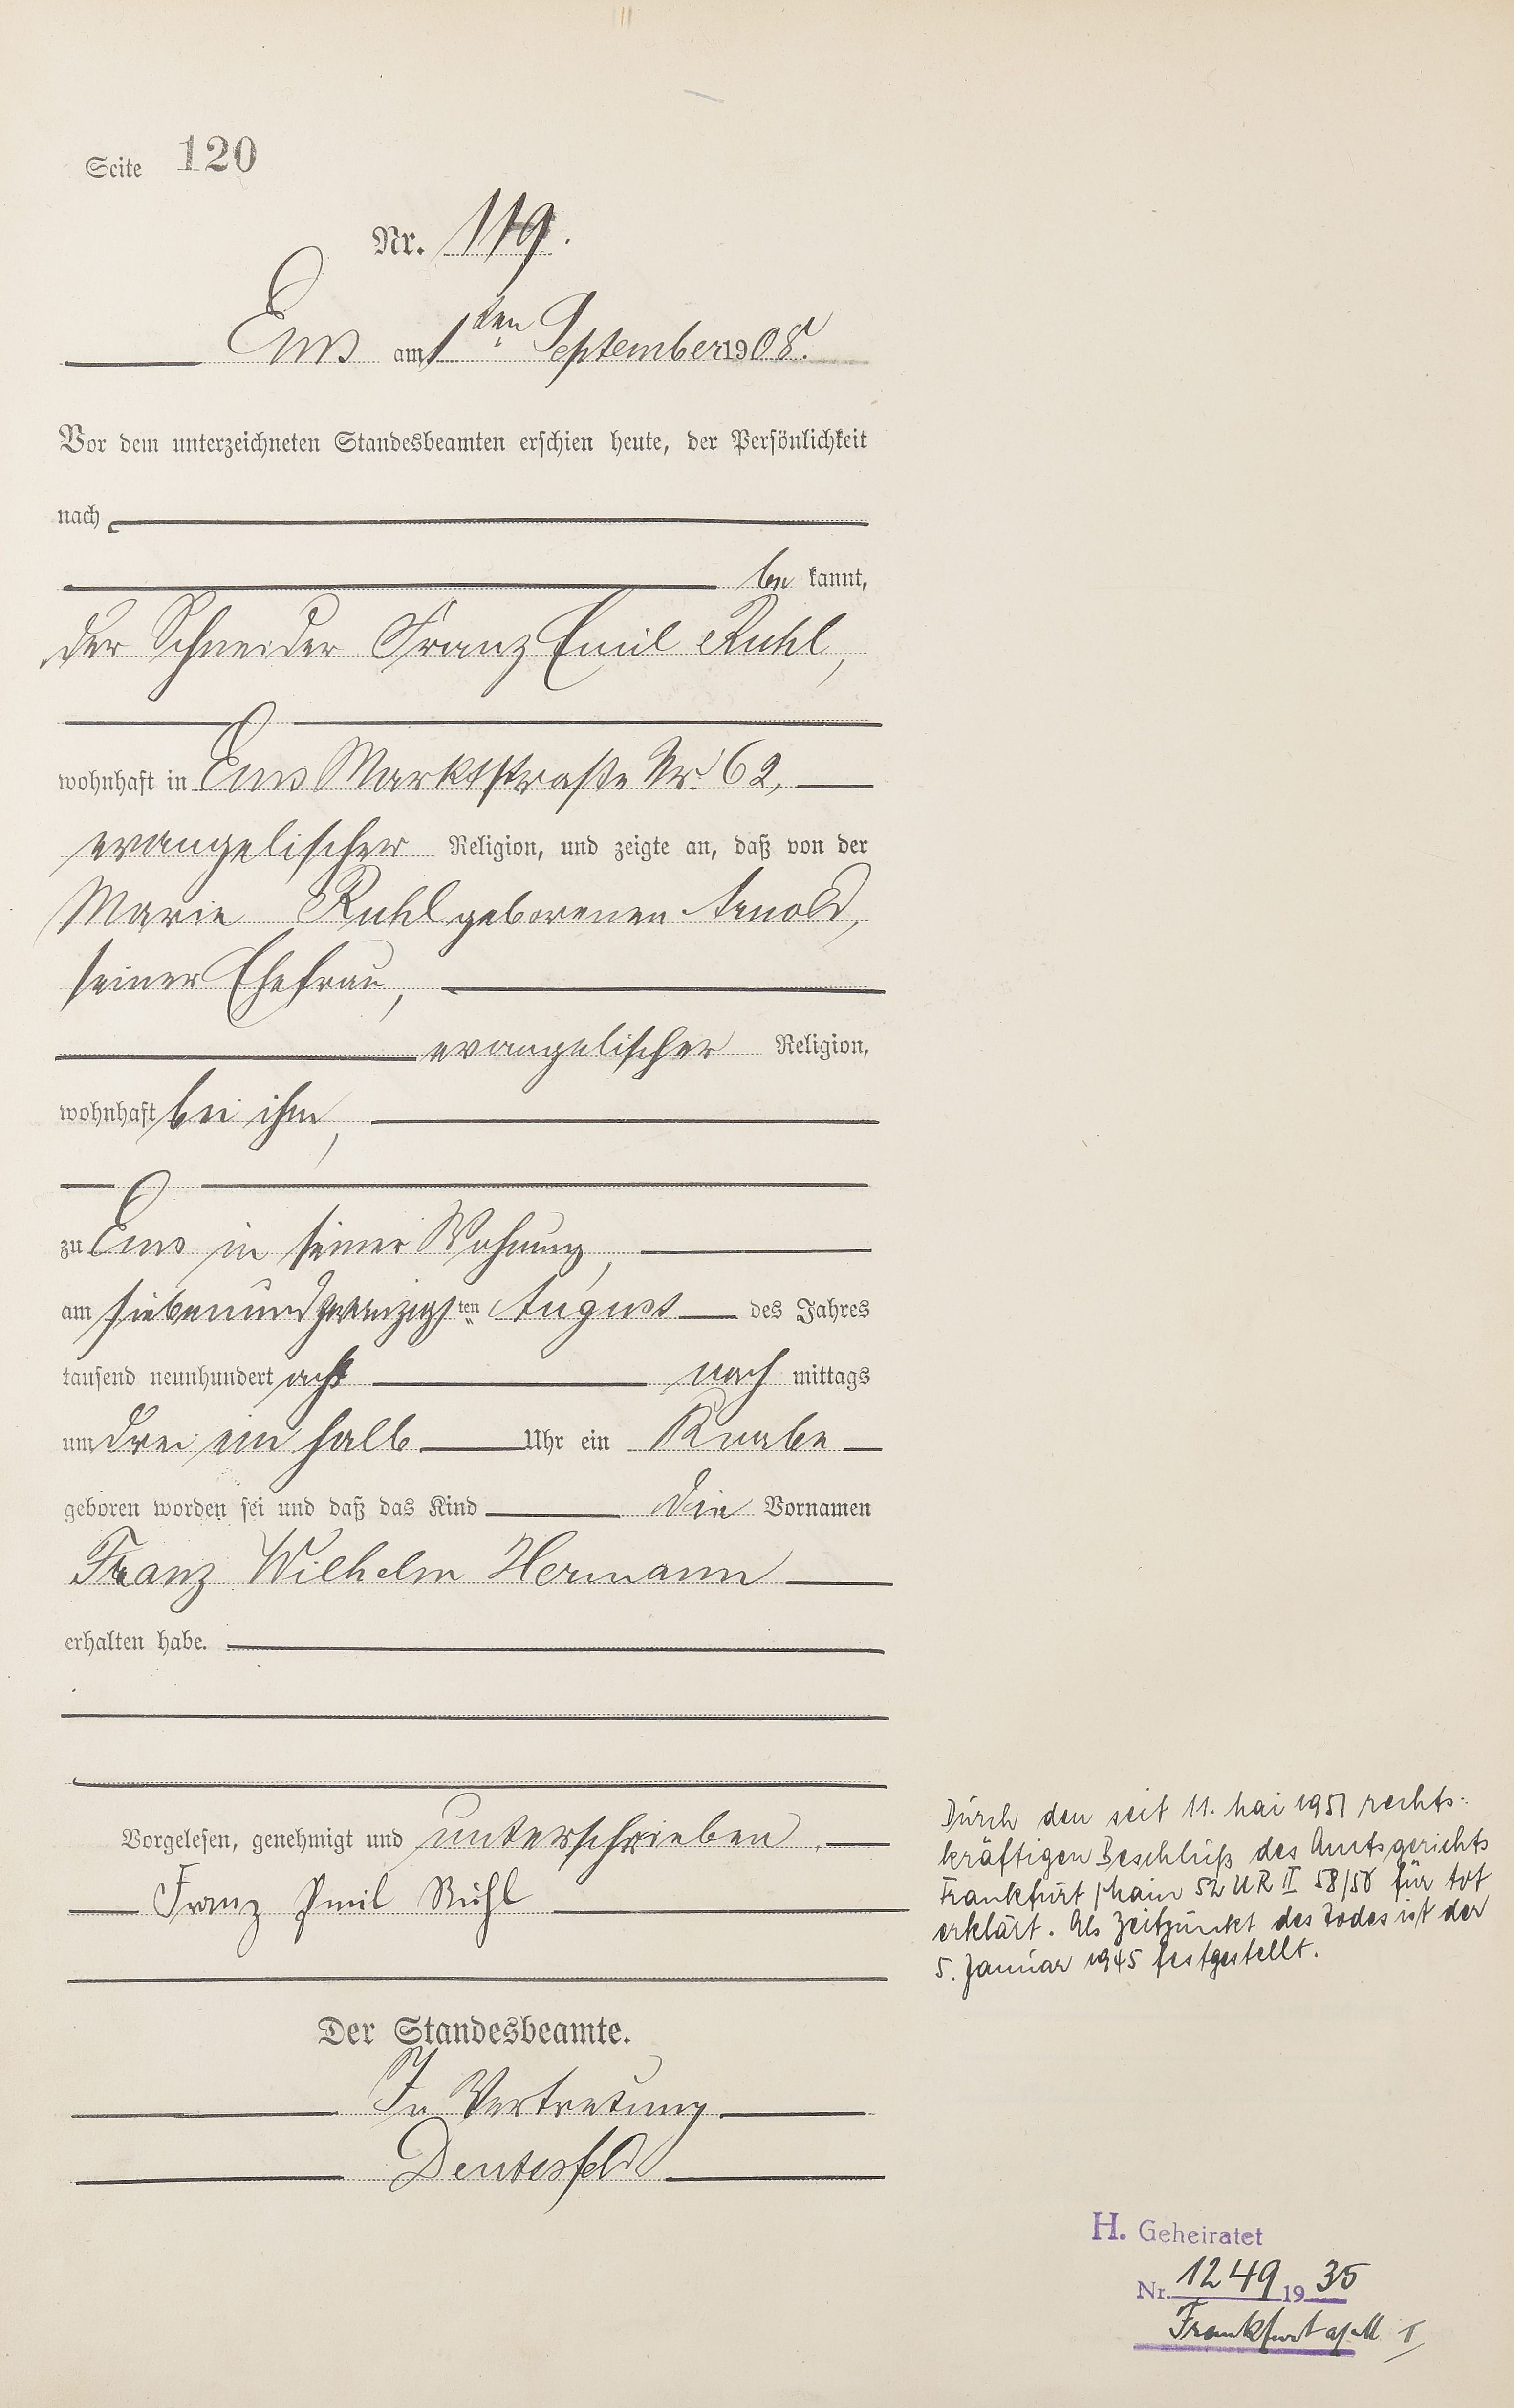 Seite 120
Nr. 119.
Ems am 1ten September 1908.
Vor dem unterzeichneten Standesbeamten erschien heute, der Persönlichkeit
nach
be kannt,
der Schneider Franz Emil Ruhl,
wohnhaft in Ems Marktstraße Nr. 62,
evangelischer Religion, und zeigte an, daß von der
Marie Ruhl geborenen Arnold,
seiner Ehefrau,
evangelischer Religion,
wohnhaft bei ihm,
zu Ems in seiner Wohnung,
am siebenundzwanzigsten August des Jahres
tausend neunhundert acht nach mittags
um drei ein halb Uhr ein Knabe
geboren worden sei und daß das Kind die Vornamen
Franz Wilhelm Hermann
erhalten habe.
Vorgelesen, genehmigt und unterschrieben.
Franz Emil Rühl
Der Standesbeamte.
In Vertretung
Deutesfeld
Durch den seit 11. Mai 1951 rechts-
kräftigen Beschluß des Amtsgerichts
Frankfurt/Main 52 UR II 58/50 für tot
erklärt. Als Zeitpunkt des Todes ist der
5. Januar 1945 festgestellt.
H. Geheiratet
Nr. 1249 1935
Frankfurt a/M I